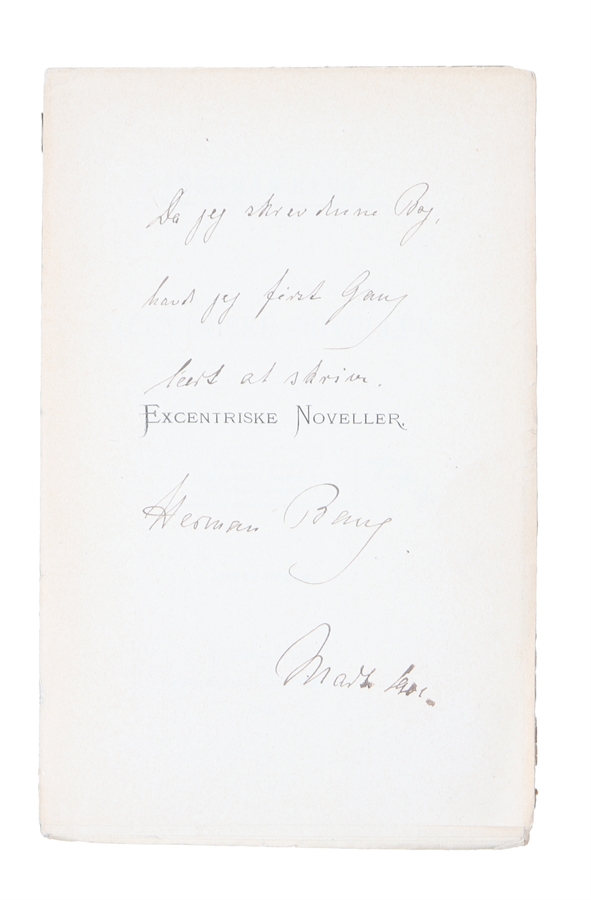 Da jeg skrev denne Bog,
havde jeg først Gang
lært at skrive.
EXCENTRISKE NOVELLER.
Herman Bang
Marts 1901.